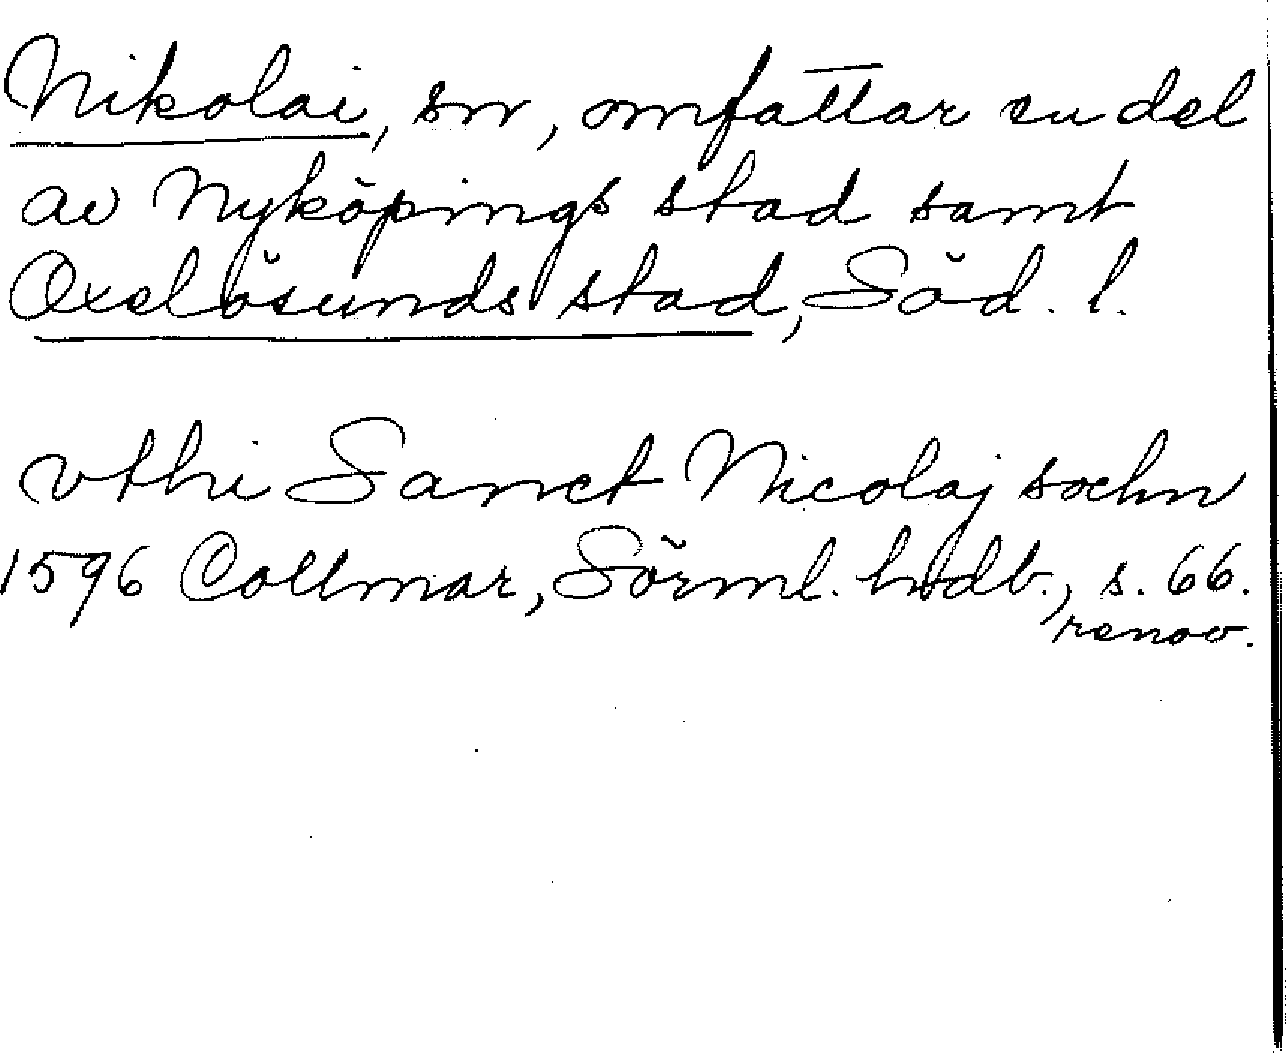 Nikolai, sn, omfattar en del
av Nyköpings stad samt
Oxelösunds stad, Söd. l.
vthi Sanct Nicolaj sochn
1596 Collmar, Sörml. hvdb., s. 66.
renov.